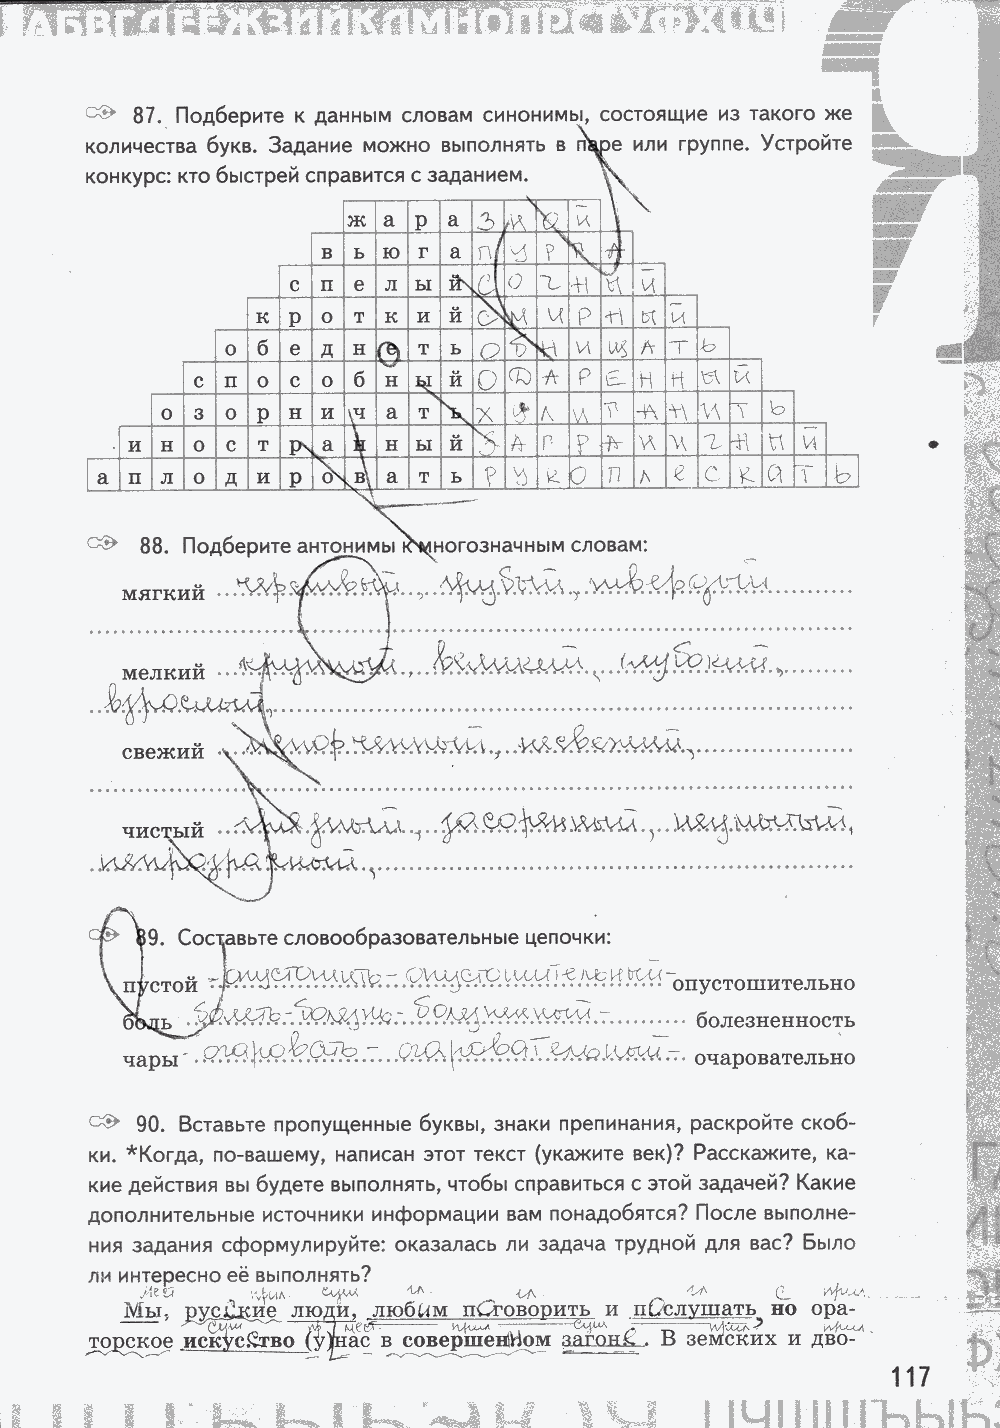 АБВГДЕЁЖЗИЙКЛМНОПРСТУФХЦЧ
Я
87. Подберите к данным словам синонимы, состоящие из такого же
количества букв. Задание можно выполнять в паре или группе. Устройте
конкурс: кто быстрей справится с заданием.
жара ЗНОЙ
вьюга ПУРГА
спелый СОЧНЫЙ
кроткий СМИРНЫЙ
обеднеть ОБНИЩАТЬ
способный ОДАРЕННЫЙ
озорничать ХУЛИГАНИТЬ
иностранный ЗАГРАНИЧНЫЙ
аплодировать РУКОПЛЕСКАТЬ
88. Подберите антонимы к многозначным словам:
мягкий черствый, грубый, твердый
мелкий крупный, великий, глубокий,
взрослый,
свежий испорченный, несвежий,
чистый грязный, засоренный, неумытый,
непрозрачный,
89. Составьте словообразовательные цепочки:
пустой - опустошить - опустошительный - опустошительно
боль болеть - болезнь - болезненный - болезненность
чары - очаровать - очаровательный - очаровательно
90. Вставьте пропущенные буквы, знаки препинания, раскройте скоб-
ки. *Когда, по-вашему, написан этот текст (укажите век)? Расскажите, ка-
кие действия вы будете выполнять, чтобы справиться с этой задачей? Какие
дополнительные источники информации вам понадобятся? После выполне-
ния задания сформулируйте: оказалась ли задача трудной для вас? Было
ли интересно её выполнять?
мест прил. сущ гл. гл. гл с прил.
Мы, русские люди, любим поговорить и послушать, но ора-
сущ пр. мест. прил сущ прил. прил.
торское искусство (у) нас в совершенном загоне. В земских и дво-
117